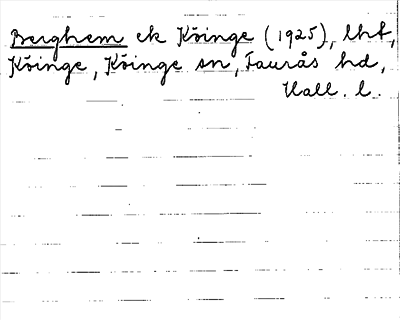 Berghem ek Köinge (1925), lht,
Köinge, Köinge sn, Faurås hd,
Hall. l.